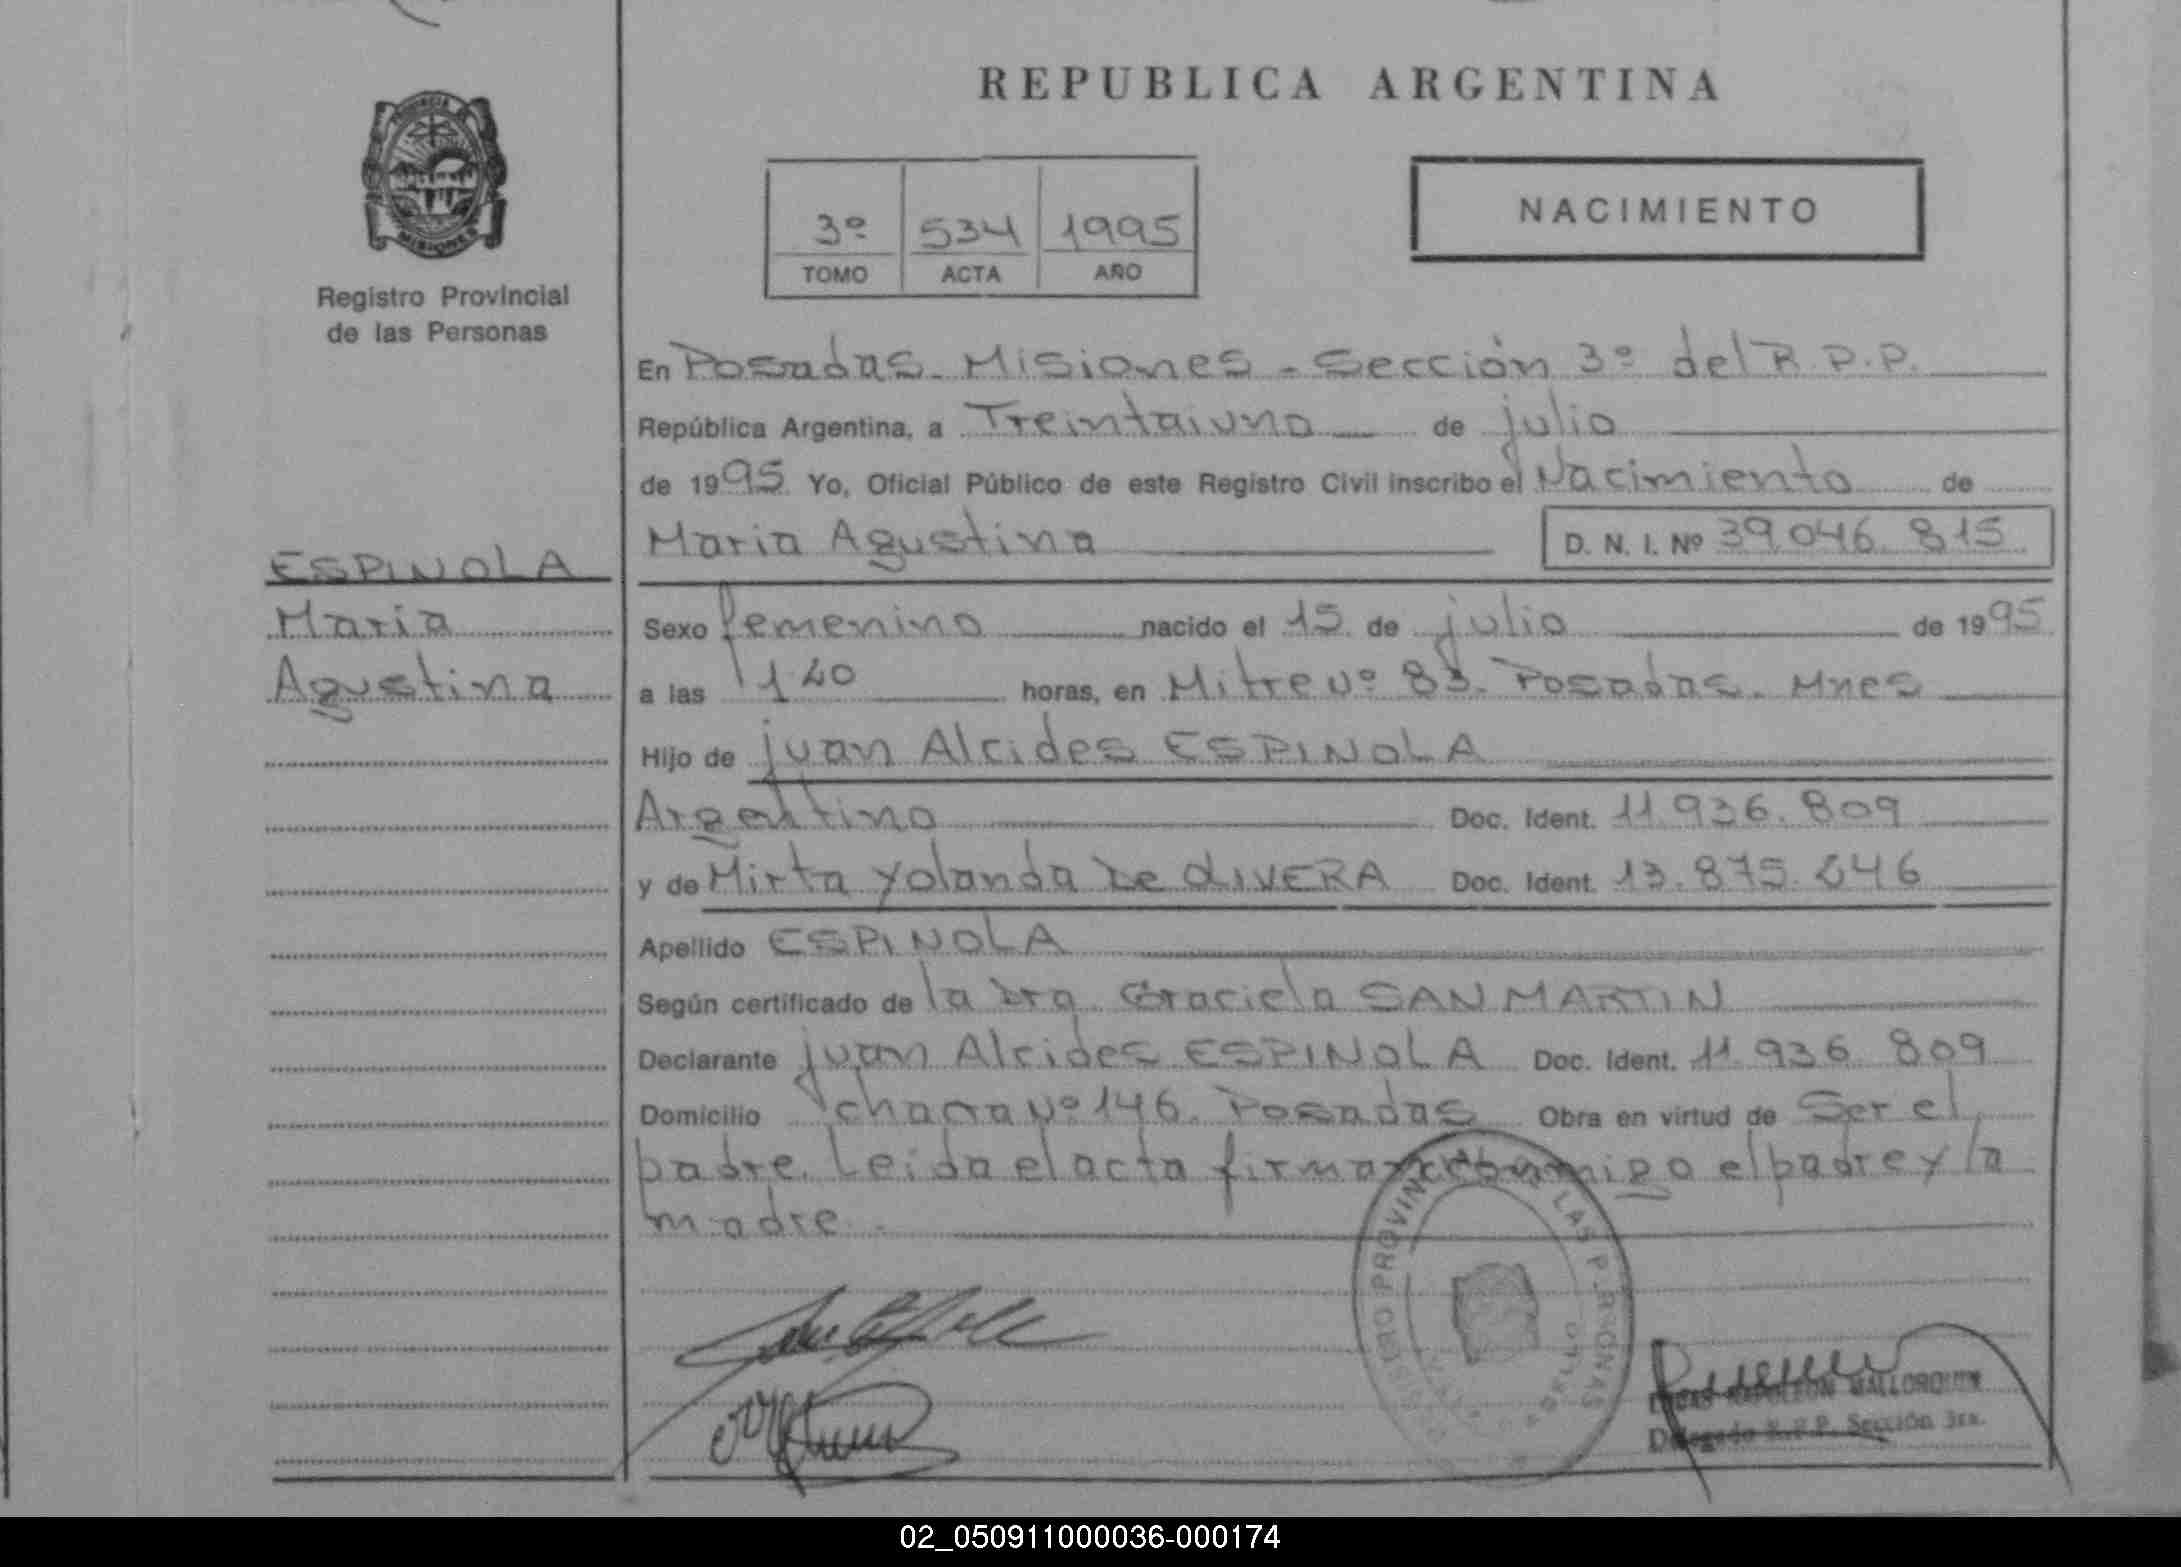 REPUBLICA ARGENTINA
PROVINCIA
MISIONES
Registro Provincial
de las Personas
3º 534 1995
TOMO ACTA AÑO
NACIMIENTO
En Posadas. Misiones - Sección 3º del R.P.P.
República Argentina, a Treintaiuno de julio
de 1995 Yo, Oficial Público de este Registro Civil inscribo el Nacimiento de
Maria Agustina D. N. I. Nº 39.046.815
ESPINOLA
Maria
Agustina
Sexo femenino nacido el 15 de julio de 1995
a las 1 horas, en Mitre Nº 83. Posadas. Mnes
Hijo de juan Alcides ESPINOLA
Argentino Doc. Ident. 11.936.809
y de Mirta Yolanda De OLIVERA Doc. Ident. 13.875.
Apellido ESPINOLA
Según certificado de la Dra. Graciela SAN MARTIN
Declarante juan Alcides ESPINOLA Doc. Ident. 11.936.809
Domicilio chacra Nº 146. Posadas Obra en virtud de Ser el
padre. Leida el acta firman conmigo el padre y la
madre.
REGISTRO PROVINCIAL DE LAS PERSONAS
MALLORQUIN
Delegado R.P.P. Sección 3ra.
02_050911000036-000174